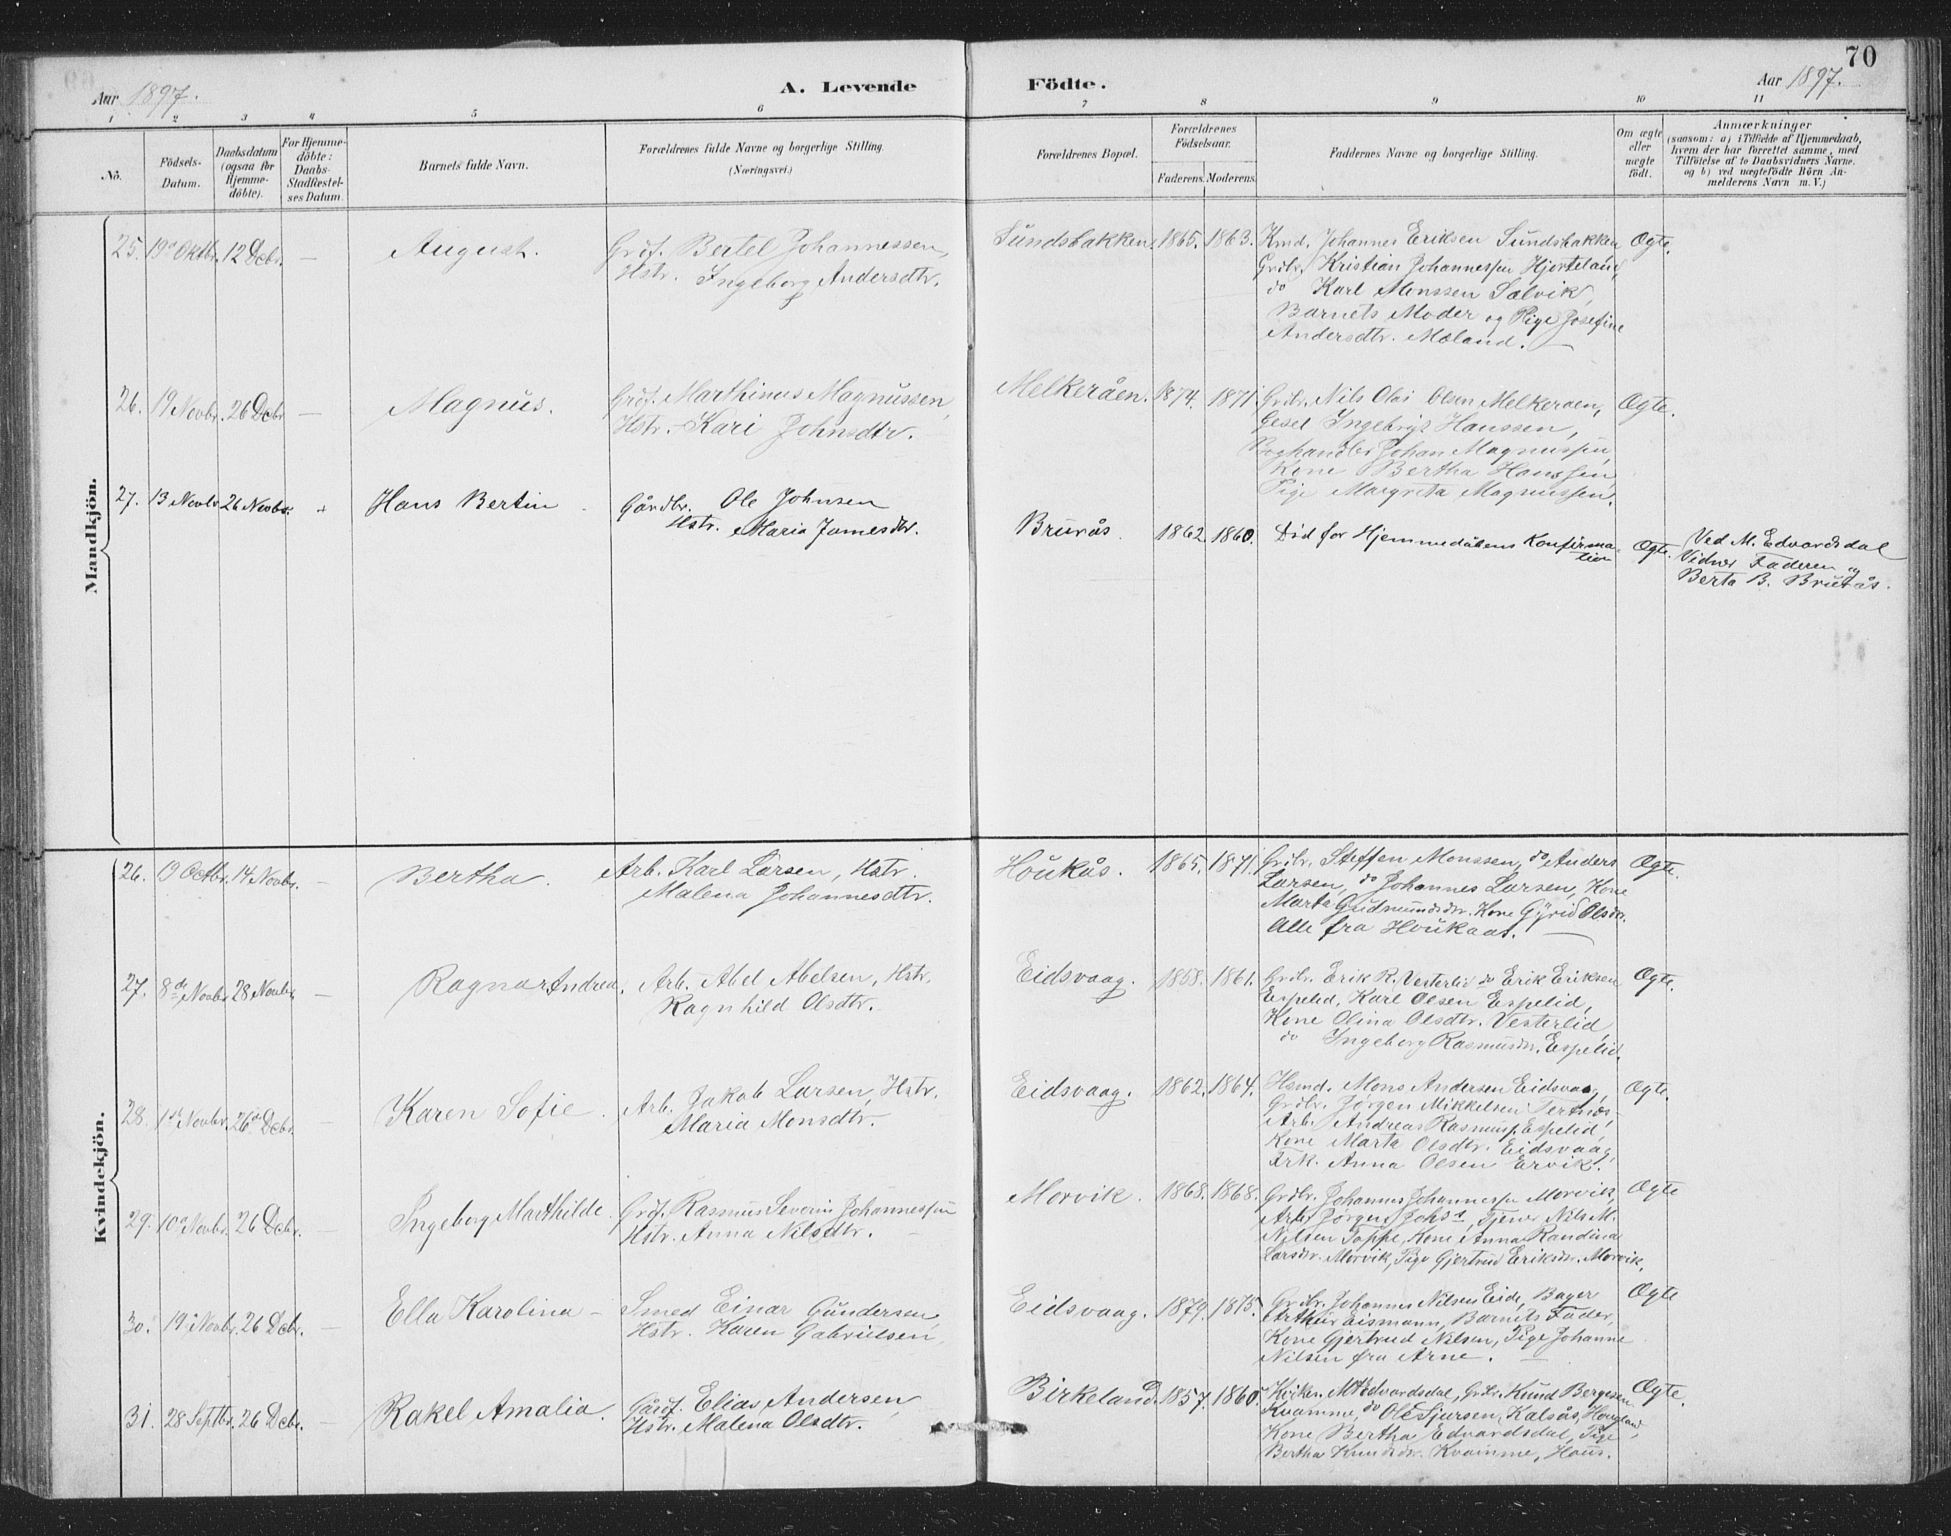 70
Aar 1897.
A. Levende Födte.
Aar 1897.
1 2 3 4 5 6 7 8 9 10 11
No.
Födsels-Datum.
Daabsdatum (ogsaa for Hjemmedöbte).
For Hjemmedöbte: Daabs-Stadfæstelses Datum.
Barnets fulde Navn.
Forældrenes fulde Navne og borgerlige Stilling.
(Næringsvei.)
Forældrenes Bopæl.
Forældrenes Födselsaar.
Faderens. Moderens.
Faddernes Navne og borgerlige Stilling.
Om ægte eller uægte födt.
Anmærkninger
(saasom: a) i Tilfælde af Hjemmedaab,
hvem der har forrettet samme, med
Tilföielse af to Daabsvidners Navne.
og b) ved uægtefödte Börn Anmelderens Navn m. V.)
Mandkjön.
25. 19de Oktbr. 12 Decbr. — August. Grdf. Bertel Johannessen, Sundsbakken. 1865. 1863. Kmd. Johannes Eriksen Sundsbakken Ægte.
Hstr. Ingeborg Andersdtr. Grdbr. Kristian Johannessen Hjorteland,
do Karl Monssen Salvik,
Barnets Moder og Pige Josefine
Andersdtr. Mæland. —
26. 19 Novbr. 26 Decbr — Magnus. Grdf. Marthinus Magnussen, Melkeråen. 1874. 1871. Grdbr. Nils Olai Olsen Melkeraen, Ægte.
Hstr. Kari Johnsdtr. Gesel Ingebrigt Hanssen,
Boghandler Johan Magnussen,
Kone Bertha Hanssen,
Pige Margreta Magnussen.
27. 13 Novbr 26 Novbr. + Hans Bertin Gårdbr. Ole Johnsen Brurås. 1862. 1860. Död för Hjemmedåbens Konfirmation Ægte. Ved M. Edvardsdal
Hstr. Maria Jamesdtr. Vidner Faderen og
Berta B. Brurås.
Kvindekjön.
26. 19 Octbr. 14 Novbr. — Bertha. Arb. Karl Larsen, Hstr. Houkås. 1865. 1871. Grdbr. Steffen Monssen, do Anders Ægte.
Malena Johannesdtr. Larsen, do Johannes Larsen, Kone
Marta Gudmundsdtr. Kone Gyrid Olsdtr.
Alle fra Houkaas. —
27. 8de Novbr 28 Novbr — Ragna Andrea. Arb. Abel Abelsen, Hstr. Eidsvaag. 1858. 1861. Grdbr. Erik R. Vesterlid do Erik Eriksen Ægte.
Ragnhild Olsdtr. Espelid, Karl Olsen Espelid,
Kone Olina Olsdtr. Vesterlid,
do Ingeborg Rasmusdtr. Espelid.
28. 1ste Novbr. 26de Decbr. — Karen Sofie. Arb. Jakob Larsen, Hstr. Eidsvaag. 1862. 1864. Hsmd. Mons Andersen Eidsvaag, Ægte.
Maria Monsdtr. Grdbr. Jørgen Mikkelsen Tertnæs,
Arb. Andreas Rasmusp. Espelid,
Kone Marta Olsdtr. Eidsvaag,
Frk. Anna Olsen Ervik.
29. 10de Novbr. 26 Decbr. — Ingeborg Marthilde. Grdf. Rasmus Severin Johannessen Morvik. 1868. 1868. Grdbr. Johannes Johannessen Morvik, Ægte
Hstr. Anna Nilsdtr. — Arb. Jørgen Johs., Tjener Nils M.
Nilsen Toppe, Kone Anna Randina
Larsdtr. Morvik, Pige Gjertrud Eriksdtr. Morvik.
30. 19de Novbr. 26 Decbr. — Ella Karolina — Smed Einar Gundersen, Eidsvaag. 1879. 1875. Grdbr. Johannes Nilsen Eide, Bager Ægte
Hstr. Karen Gabrielsen. Arthur Eismann, Barnets Fader,
Kone Gjertrud Nilsen, Pige Johanne
Nilsen fra Arne. —
31. 28 Septbr. 26 Decbr. — Rakel Amalia. Gårdf. Elias Andersen, Birkeland. 1857. 1860. Kirkes. M. Edvardsdal, Grdbr. Knud Bergesen Ægte.
Hstr. Malena Olsdtr. Kvamme, do Ole Sjursen, Kalsås, Hougland,
Kone Bertha Edvardsdal, Pige
Bertha Knudsdtr. Kvamme, Hous.